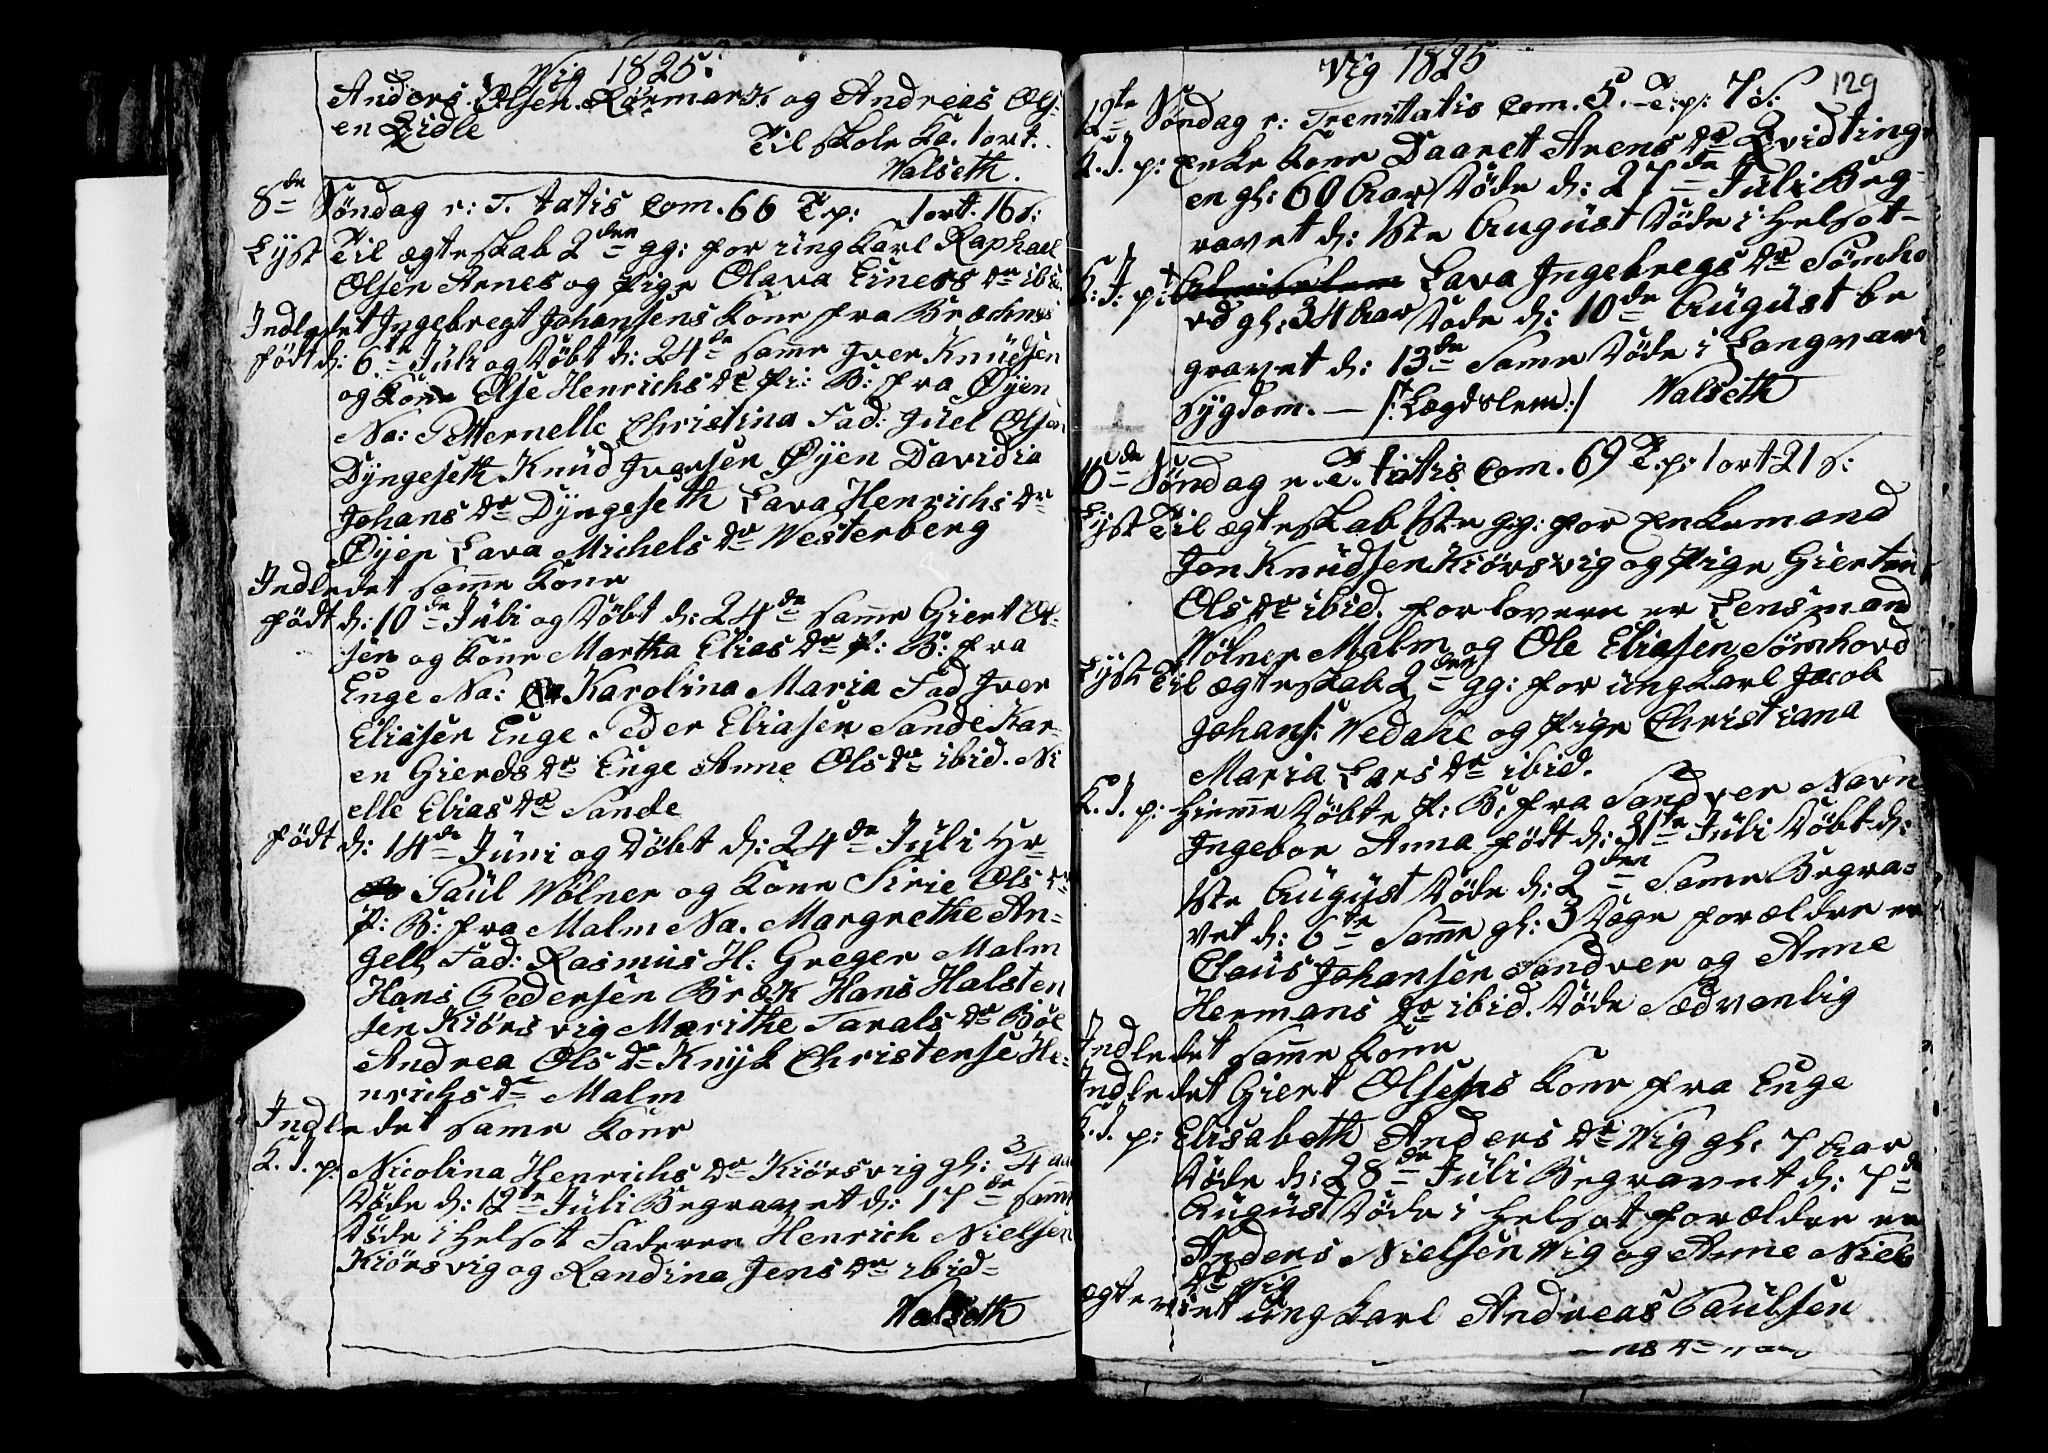 Vig 1825.
Anders Olsen Rørmark og Andreas Ols-
en Lidle
Til Skole Ka. 1 ort.
Walseth.
8de Søndag e: T. tatis Com. 66 T.p: 1 ort. 16 s:
Lyst Til ægteskab 2den gg: for ungkarl Raphael
Olsen Arnes og Pige Olava Einers dr ibid
Indledet Ingebregt Johansens Kone fra
født d: 6te Juli og døbt d: 24de Samme Iver Knudsen
og Kone Else Henrichs dr Pi: B: fra Øyen
Na: Petternelle Christina Fad: Juel Olsen
Dyngeseth Knud Iversen Øyen Davidia
Johans dr Dyngeseth Lava Henrichs dr
Øyen Lava Michels dr Westerberg
Indledet Samme Kone
født d: 10de Juli og døbt d: 24de Samme Giert Ol-
sen og Kone Martha Elias dr P: B: fra
Enge Na: Karolina Maria Fad Iver
Eliasen Enge Peder Eliasen Sande Kar-
en Gierds dr Enge Anne Ols dr ibid. Ni
elle Elias dr Sande
født d: 14de Juni og døbt d: 24de Juli Hr-
Paul Wølner og Kone Sirie Ols dr
P: B: fra Malm Na. Margrethe An-
gell Fad: Rasmus H: Greger Malm
Hans Pedersen Bræk Hans Halsten
sen Kiørsvig Marithe Tarals dr Böe
Andrea Ols dr Knyk Christense He-
nrichs dr Malm
Indledet Same Kone
K. J. p: Nicolina Henrichs dr Kiörsvig gl: 3/4 aar
døde d: 12te Juli Begravet d: 17de Samme
døde i Helsot Faderen Henrich Nielsen
Kiörsvig og Randina Jens dr ibid-
Walseth
Vig 1825
129
12te Søndag e: Trenitatis Com. 5. T: p: 7 s:
K. J. p: Enke Kone Daaret Arens dr Qvidting
en gl: 60 Aar døde d: 27de Juli Beg-
ravet d: 1ste August døde i Helsot-
K: J: p: Lava Ingebregs dr Sömho
vd gl: 34 Aar døde d: 10de August be
gravet d: 13de Same døde i Langvari
Sygdom. — /: Lægdslem :/ Walseth
Søndag e. T. tatis Com. 69 T. p: 1 ort 21 s:
Lyst Til ægteskab 1ste gg: for Enkemand
Jon Knudsen Kiörsvig og Pige Giertru
Ols dr ibid. forlovere er Lensmand
Wølner Malm og Ole Eliasen Sömhovd
Lyst Til ægteskab 2den gg: for ungkarl Jacob
Johans: Vedahl og Pige Christiana
Maria Lars dr ibid.
K. J. p: Hiemme døbte P: B: fra Sandver Navn
Ingebor Anna født d: 31te Juli døbt d:
1ste August døde d: 2den Same Begra-
vet d: 6te Samme gl: 3 Dage forældre er
Claus Johansen Sandver og Anne
Hermans dr ibid. døde Sædvanlig
Indledet Samme Kone
Indledet Giert Olsens Kone fra Enge
K. J. p: Elisabeth Anders dr Wig gl: 7 Aar
døde d: 28de Juli Begravet d: 7de
August døde i Helsot forældre er
Anders Nielsen Wig og Anne Niels
dr Vig
ægteviet ungkarl Andreas Paulsen